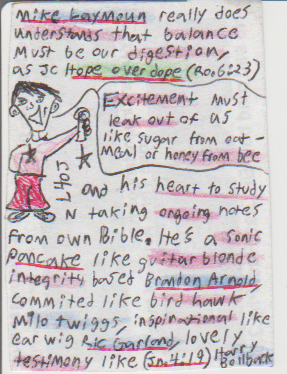 Mike Laymoun really does
understands that balance
Must be our digestion,
as JC Hope over dope (Ro.6:23)
Excitement must
leak out of us
like sugar from oat-
meal or honey from bee
L4OJ
and his heart to study
N taking ongoing notes
from own Bible. He's a sonic
Pancake like guitar blonde
integrity based Brandon Arnold,
commited like bird hawk
Milo twiggs, inspirational like
ear wig Ric Garland, lovely
testimony like (Jn. 4:19) Harry
Bollback